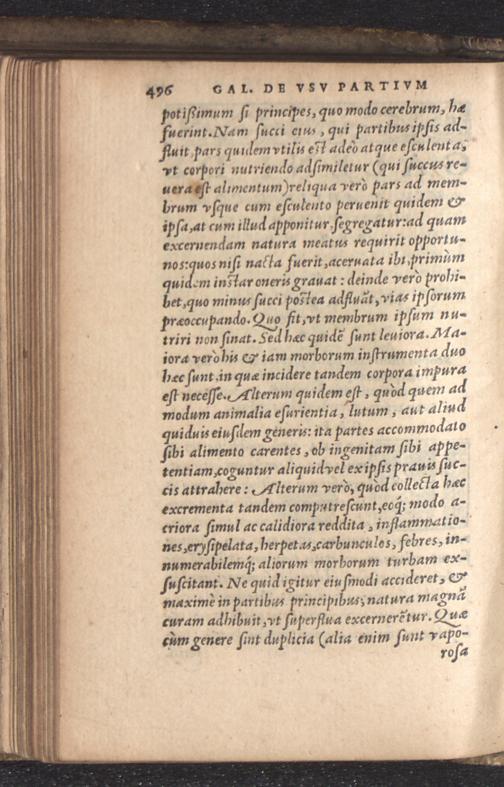 496 GAL. DE VSV PARTIVM
potißimum si principes, quo modo cerebrum, hæ
fuerint. Nam succi eius, qui partibus ipsis ad-
fluit, pars quidem vtilis est adeò atque esculenta,
vt corpori nutriendo adsimiletur (qui succus re-
uera est alimentum) reliqua verò pars ad mem-
brum vsque cum esculento peruenit quidem &
ipsa, at cum illud apponitur, segregatur: ad quam
excernendam natura meatus requirit opportu-
nos: quos nisi nacta fuerit, aceruata ibi, primùm
quidem instar oneris grauat: deinde verò prohi-
bet, quo minus succi postea adfluãt, vias ipsorum
præoccupando. Quo fit, vt membrum ipsum nu-
triri non sinat. Sed hæc quidẽ sunt leuiora. Ma-
iora verò his & iam morborum instrumenta duo
hæc sunt, in quæ incidere tandem corpora impura
est necesse. Alterum quidem est, quòd quem ad
modum animalia esurientia, lutum, aut aliud
quiduis eiusdem generis: ita partes accommodato
sibi alimento carentes, ob ingenitam sibi appe-
tentiam, coguntur aliquid vel ex ipsis prauis suc-
cis attrahere: Alterum verò, quòd collecta hæc
excrementa tandem computrescunt, eoq́; modo a-
criora simul ac calidiora reddita, inflammatio-
nes, erysipelata, herpetas, carbunculos, febres, in-
numerabilemq́; aliorum morborum turbam ex-
suscitant. Ne quid igitur eiusmodi accideret, &
maximè in partibus principibus, natura magnã
curam adhibuit, vt superflua excernerẽtur. Quæ
cùm genere sint duplicia (alia enim sunt vapo-
rosa